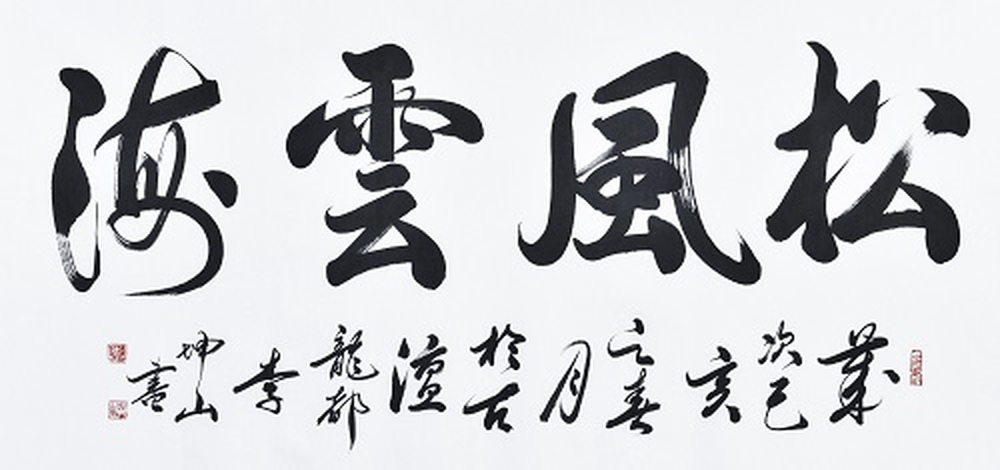 松風雲海
歲次己亥之春月於古澶龍都李坤山書